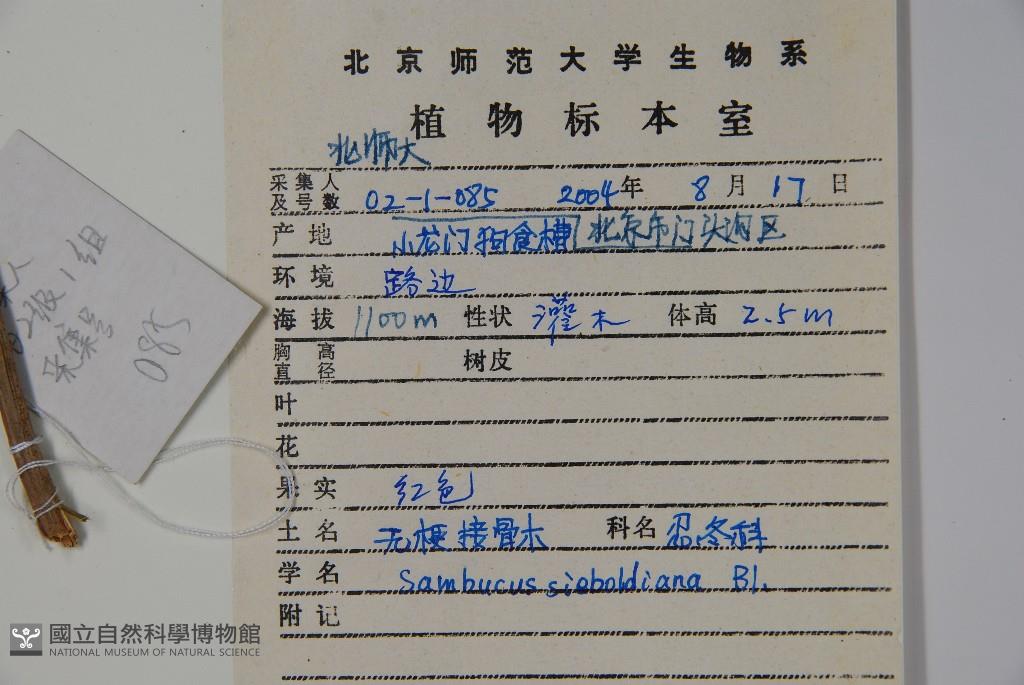 北京师范大学生物系
植物标本室
北师大
采集人及号数 02-1-085 2004年 8月17日
产地 小龙门狗食槽 北京市门头沟区
环境 路边
海拔 1100m 性状 灌木 体高 2.5m
胸高直径 树皮
叶
花
果实 红色
土名 无梗接骨木 科名 忍冬科
学名 Sambucus sieboldiana Bl.
附记
人
02级1组
采集号
085
國立自然科學博物館
NATIONAL MUSEUM OF NATURAL SCIENCE